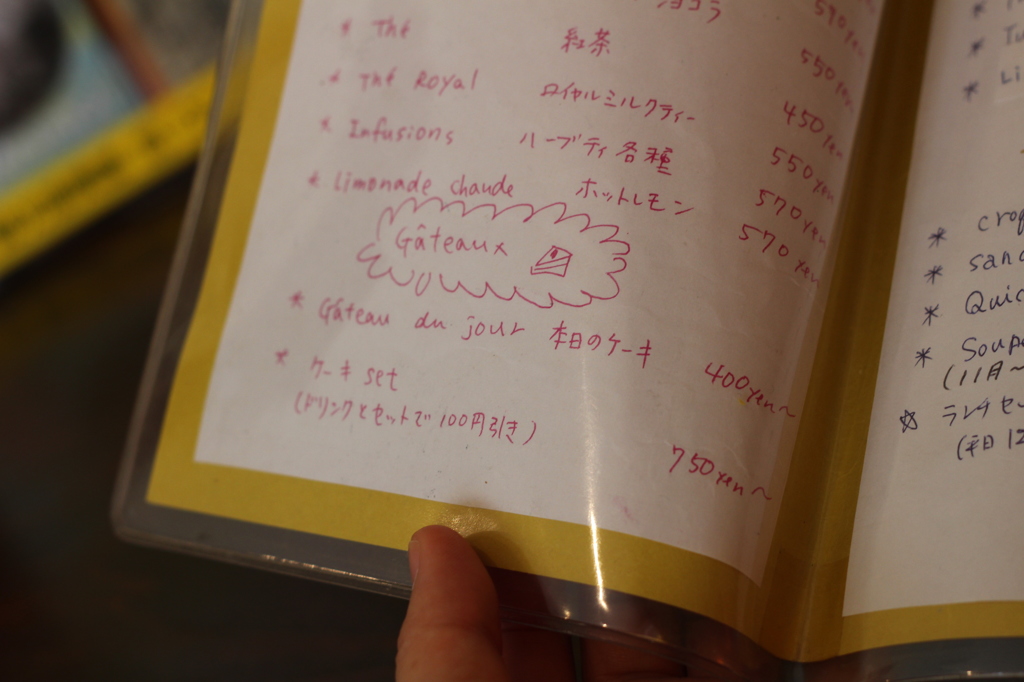 590yen
ョコラ 550yen
* Thé 紅茶 450yen
* Thé Royal ロイヤルミルクティー 550yen
* Infusions ハーブティ各種 570yen
* limonade chaude ホットレモン 570yen
Gâteaux
* Gâteau du jour 本日のケーキ 400yen~
* ケーキ set 750yen~
(ドリンクとセットで100円引き)
* Li
* croq
* sand
* Quic
* Soupe
(11月~
☆ ランチセ
(平日 12